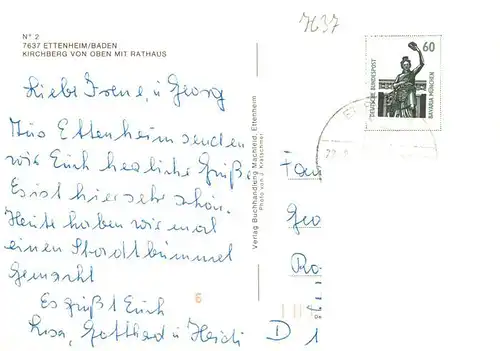 7637
N° 2
7637 ETTENHEIM/BADEN
KIRCHBERG VON OBEN MIT RATHAUS
60
DEUTSCHE BUNDESPOST
BAVARIA MÜNCHEN
Liebe Irene, u Georg
Aus Ettenheim senden
wir Euch herzliche Grüße.
Es ist hier sehr schön.
Heute haben wir mal
einen Stadtbummel
gemacht
Es grüßt Euch
Rosa, Gotthard u Heidi
6
Verlag Buchhandlung Machleid, Ettenheim
Photo von J. Kratschmer
Fam
Geo
Ro
D 1